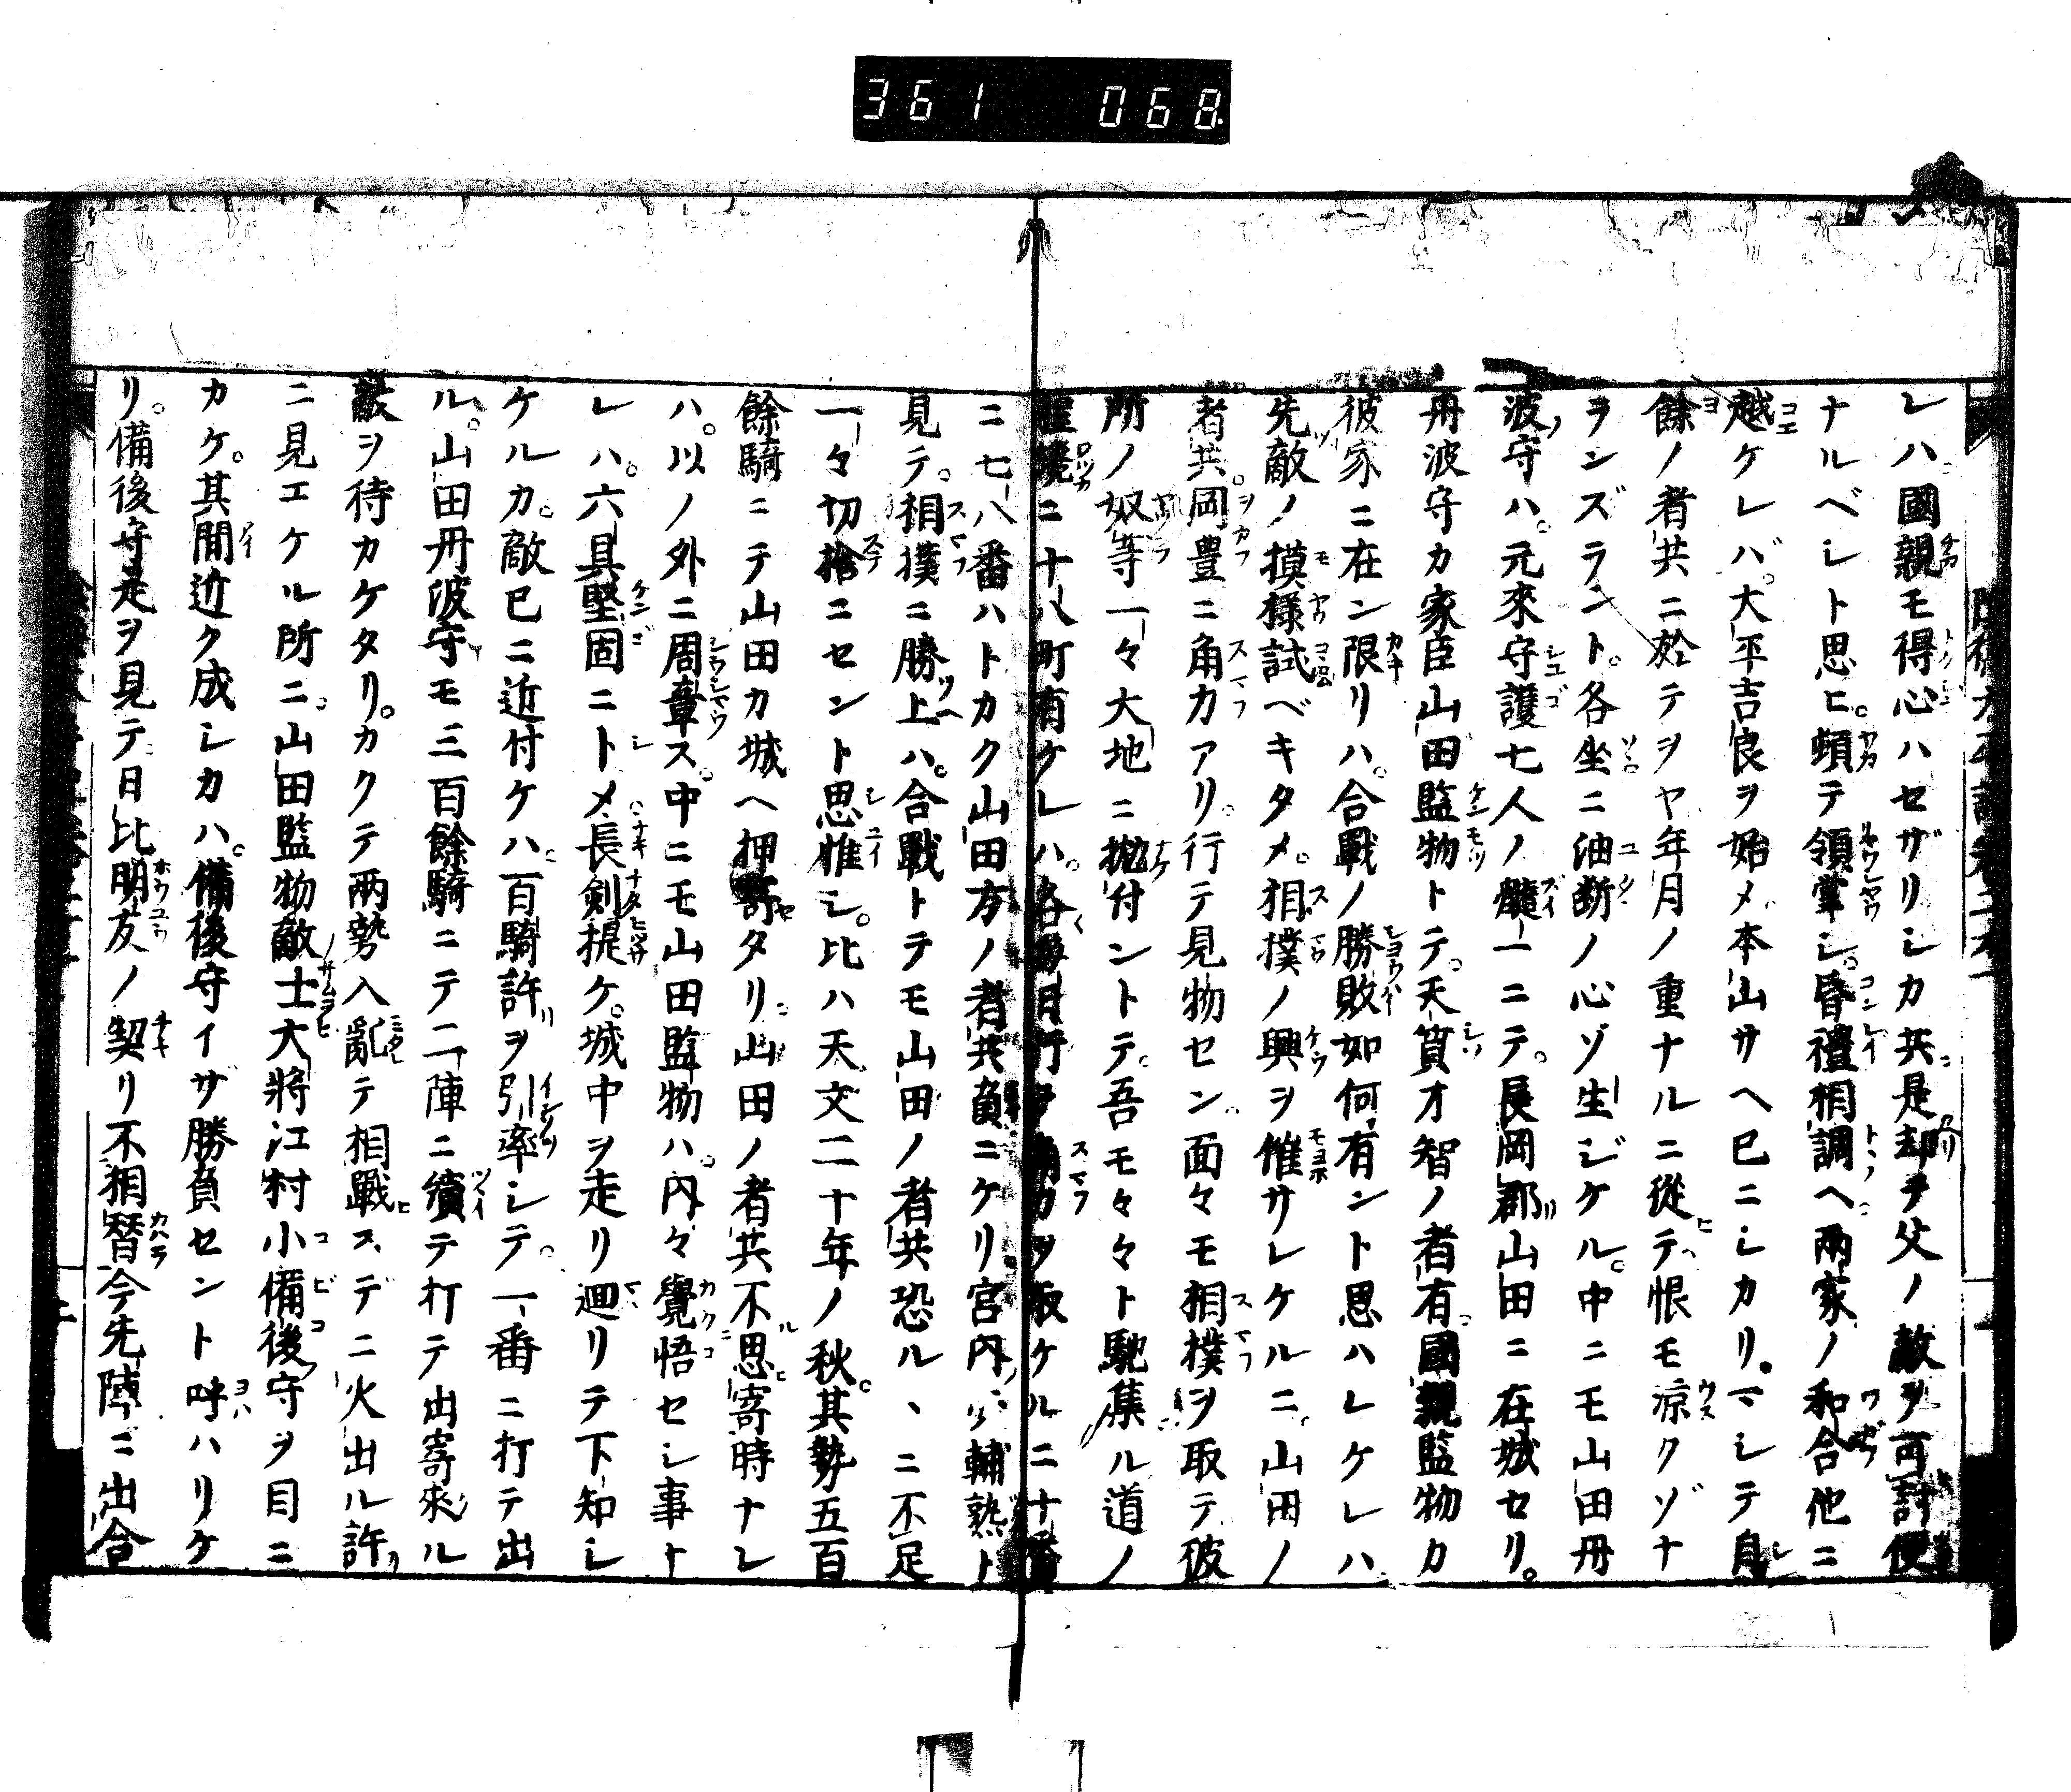 361 068
レハ國親モ得心ハセザリシカ共是却テ父ノ敵ヲ可討便
ナルベシト思ヒ頓テ領掌シ昏禮相調ヘ兩家ノ和合他ニ
越ケレバ大平吉良ヲ始メ本山サヘ已ニシカリマシテ自
餘ノ者共ニ於テヲヤ年月ノ重ナルニ從テ恨モ涼クゾナ
ランズラント各坐ニ油断ノ心ゾ生ジケル中ニモ山田丹
波守ハ元來守護七人ノ髓一ニテ長岡郡山田ニ在城セリ
丹波守カ家臣山田監物トテ天質才智ノ者有國親監物カ
彼家ニ在ン限リハ合戰ノ勝敗如何有ント思ハレケレハ
先敵ノ摸樣試ベキタメ相撲ノ興ヲ催サレケルニ山田ノ
者共岡豊ニ角力アリ行テ見物セン面々モ相撲ヲ取テ彼
所ノ奴等一々大地ニ抛付ントテ吾モ々々ト馳集ル道ノ
ニ十八町有ケレハ各角力ヲ取ケルニ十番
ニ七八番ハトカク山田方ノ者共負ニケリ宮内少輔熟ト
見テ相撲ニ勝上ハ合戰トテモ山田ノ者共恐ルヽニ不足
一々切捨ニセント思惟シ比ハ天文二十年ノ秋其勢五百
餘騎ニテ山田カ城ヘ押寄タリ山田ノ者共不思寄時ナレ
ハ以ノ外ニ周章ス中ニモ山田監物ハ内々覺悟セシ事ナ
レハ六具堅固ニトメ長剣提ケ城中ヲ走リ廻リテ下知シ
ケルカ敵已ニ近付ケハ百騎許ヲ引率シテ一番ニ打テ出
ル山田丹波守モ三百餘騎ニテ二陣ニ續テ打テ出寄來ル
敵ヲ待カケタリカクテ兩勢入亂テ相戰スデニ火出ル許
ニ見エケル所ニ山田監物敵士大將江村小備後守ヲ目ニ
カケ其間近ク成シカハ備後守イザ勝負セント呼ハリケ
リ備後守是ヲ見テ日比朋友ノ契リ不相替今先陣ニ出合